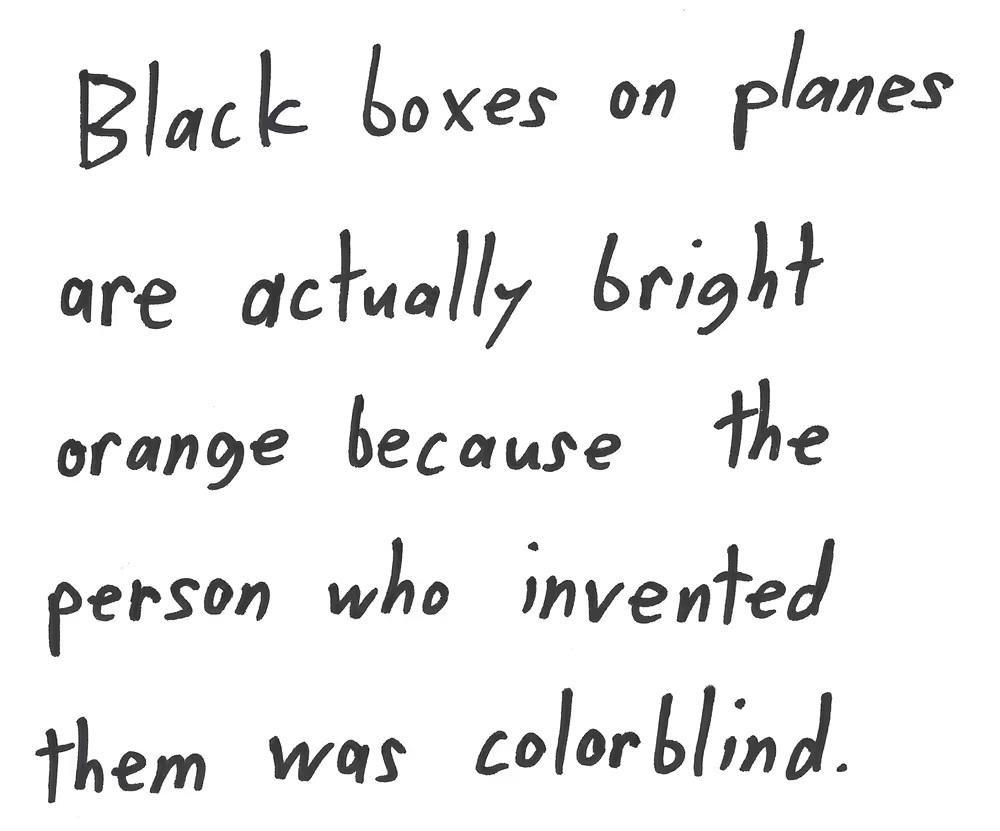 Black boxes on planes
are actually bright
orange because the
person who invented
them was colorblind.